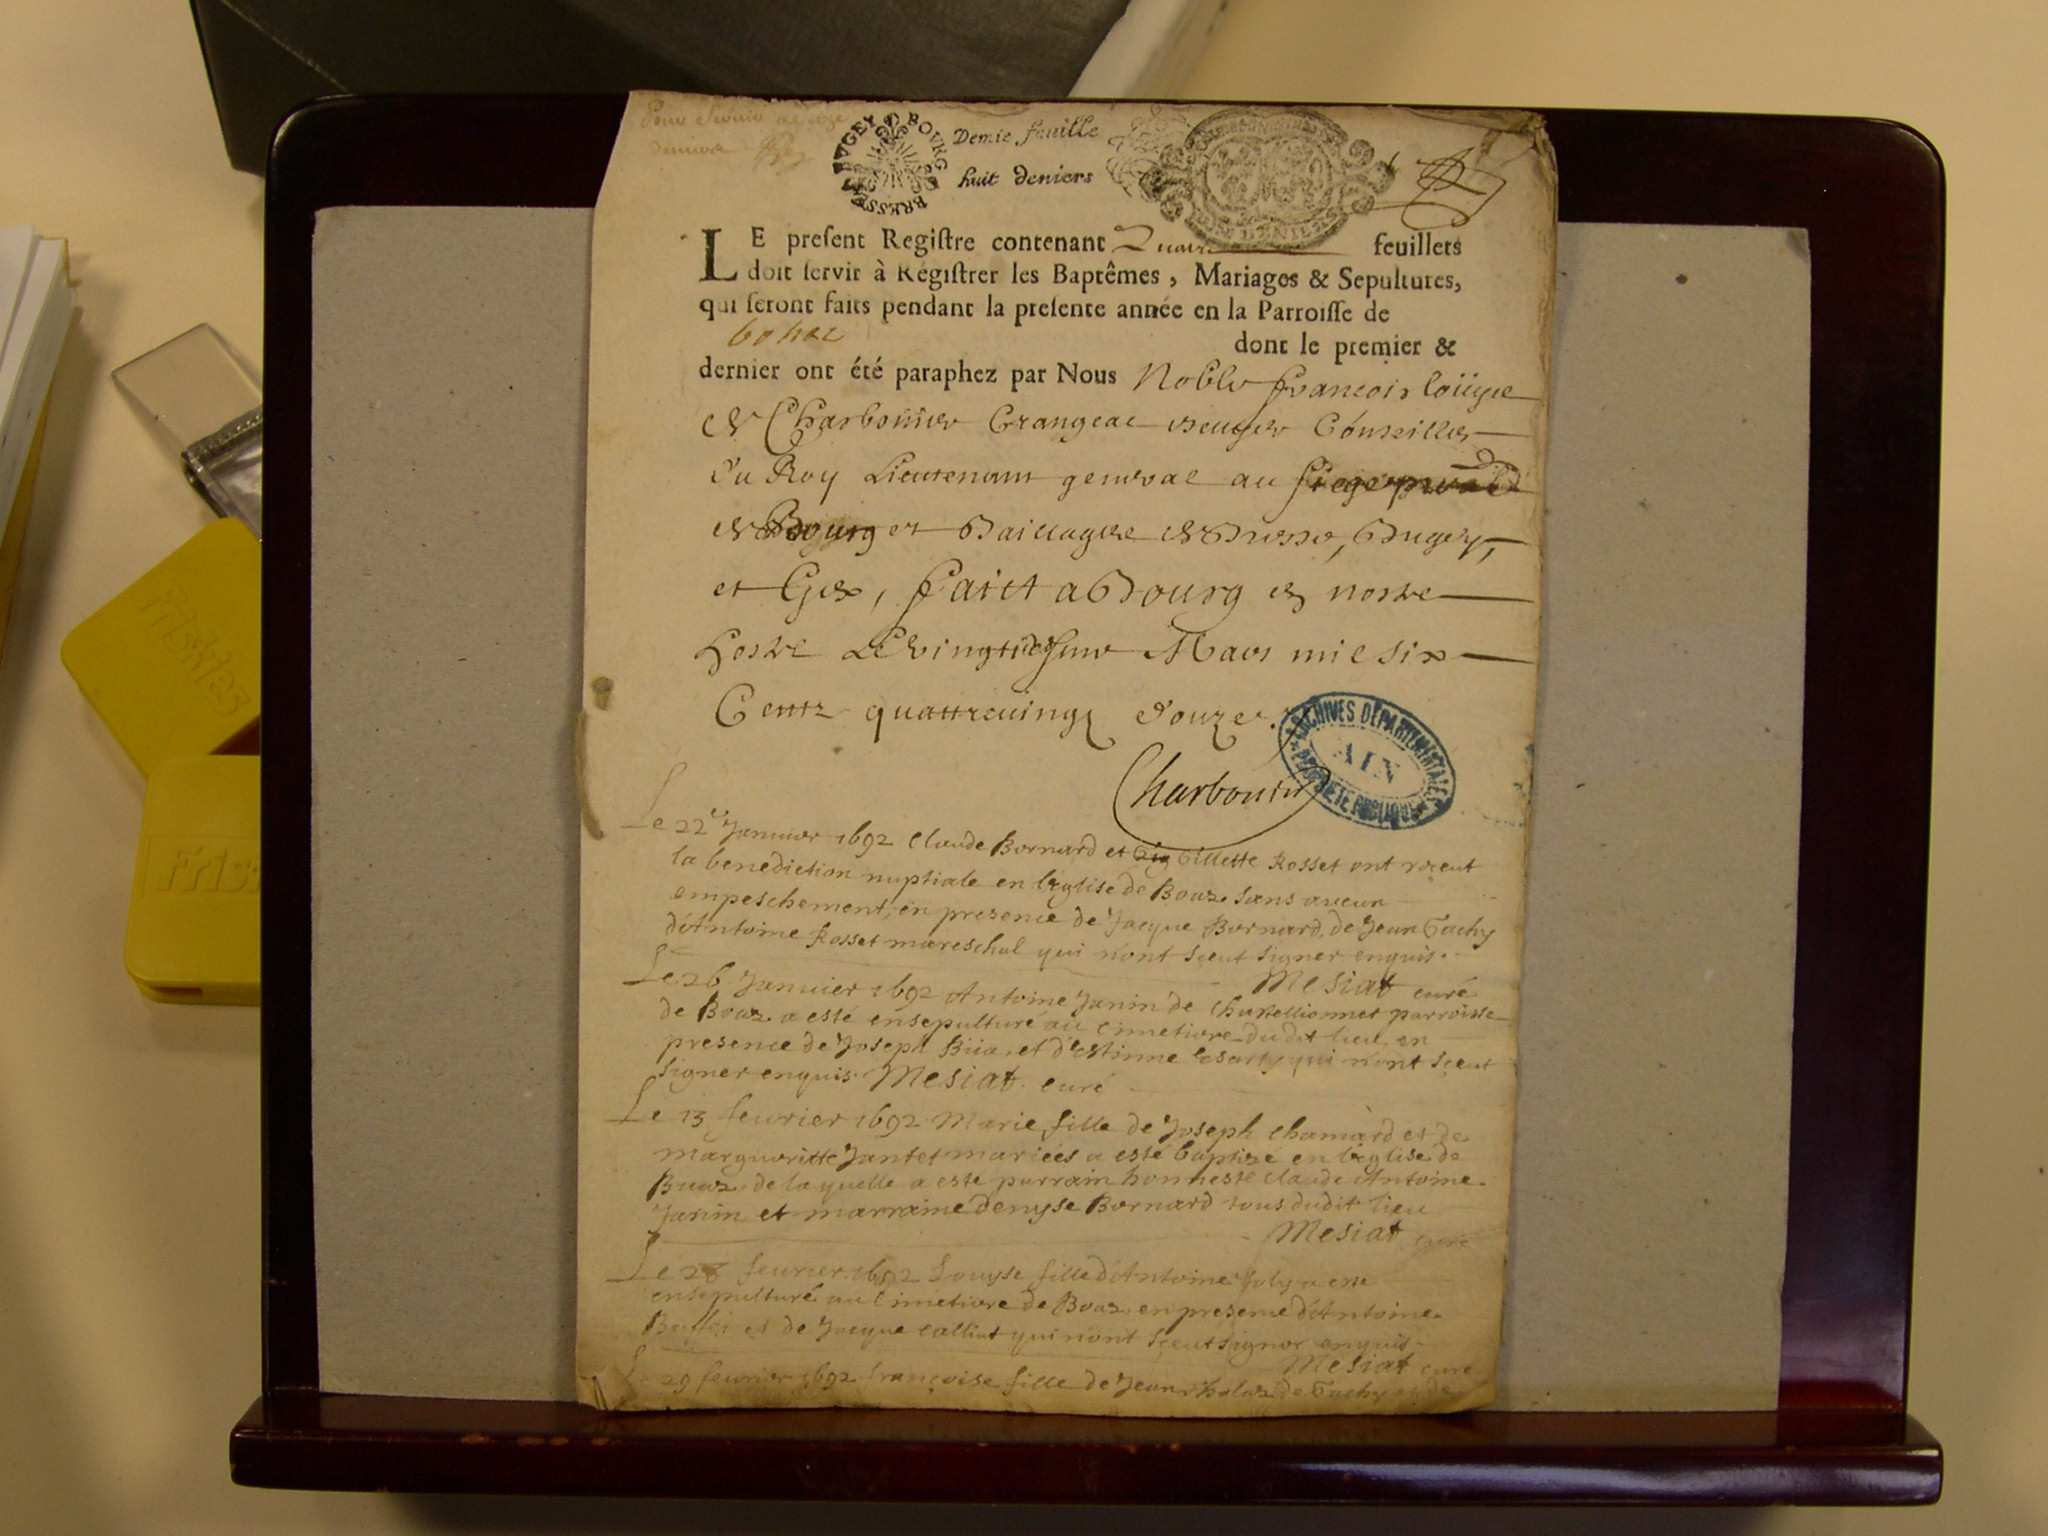 Pour servir
BUGEY BOURG BRESSE
Demie feuille
huit deniers
LE present Registre contenant Quatre feuillets
doit servir à Registrer les Baptêmes, Mariages & Sepultures,
qui seront faits pendant la presente année en la Parroisse de
bohac
dont le premier &
dernier ont été paraphez par Nous Noble françois
de Charbonnier Crangeac Conseiller
du Roy Lieutenant general au siege
de Bourg et Bailliage de Bresse, Bugey,
et Gex, faict a Bourg en nostre
hostel Le vingtiesme Mars mil six
Centz quattrevingz douze.
Charbonier
ARCHIVES DÉPARTEMENTALES
AIN
PROPRIÉTÉ PUBLIQUE
Le 22e Januier 1692 Claude Bornard et Gillette Rosset ont receut
la benediction nuptiale en l'eglise de Boaz sans aucun
empeschement, en presence de Jacque Bornard, de Jean Tachy
d'Antoine Rosset mareschal qui n'ont sceut signer enquis.
Mesiat curé
Le 26 Januier 1692 Antoine Janin de Chatellionnet parroisse
de Boaz a esté ensepulturé au cimetiere dudit lieu en
presence de Joseph et d'Estienne qui n'ont sceut
signer enquis. Mesiat curé
Le 13 feurier 1692 Marie fille de Joseph Chamard et de
Margueritte Jantet mariées a esté baptizé en l'eglise de
Buaz de laquelle a esté parrain honneste Claude Antoine
Janin et marraine Denyse Bornard tous dudit lieu
Mesiat curé
Le 28 feurier 1692 Louyse fille d'Antoine Joly a esté
ensepulturé au cimetiere de Boaz en presence d'Antoine
et de Jacque Calliat qui n'ont sceut signer enquis.
Mesiat curé
Le 29 feurier 1692 françoise fille de Jean de Tachy et de
Friskies
Friskies